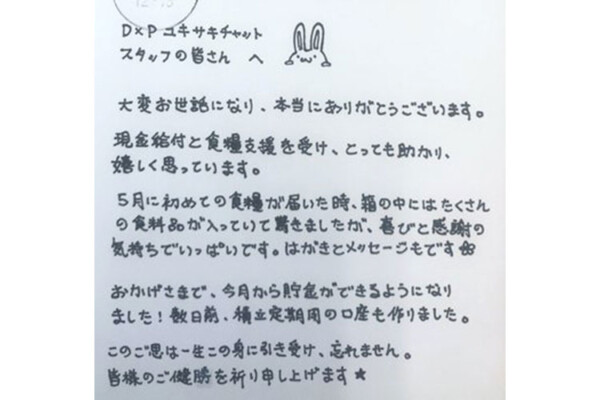 12.-3
D×P ユキサキチャット
スタッフの皆さん へ
大変お世話になり、本当にありがとうございます。
現金給付と食糧支援を受け、とっても助かり、
嬉しく思っています。
5月に初めての食糧が届いた時、箱の中にはたくさん
の食料品が入っていて驚きましたが、喜びと感謝の
気持ちでいっぱいです。はがきとメッセージもです
おかげさまで、今月から貯金ができるようになり
ました!数日前、積立定期用の口座も作りました。
このご恩は一生この身に引き受け、忘れません。
皆様のご健勝を祈り申し上げます★